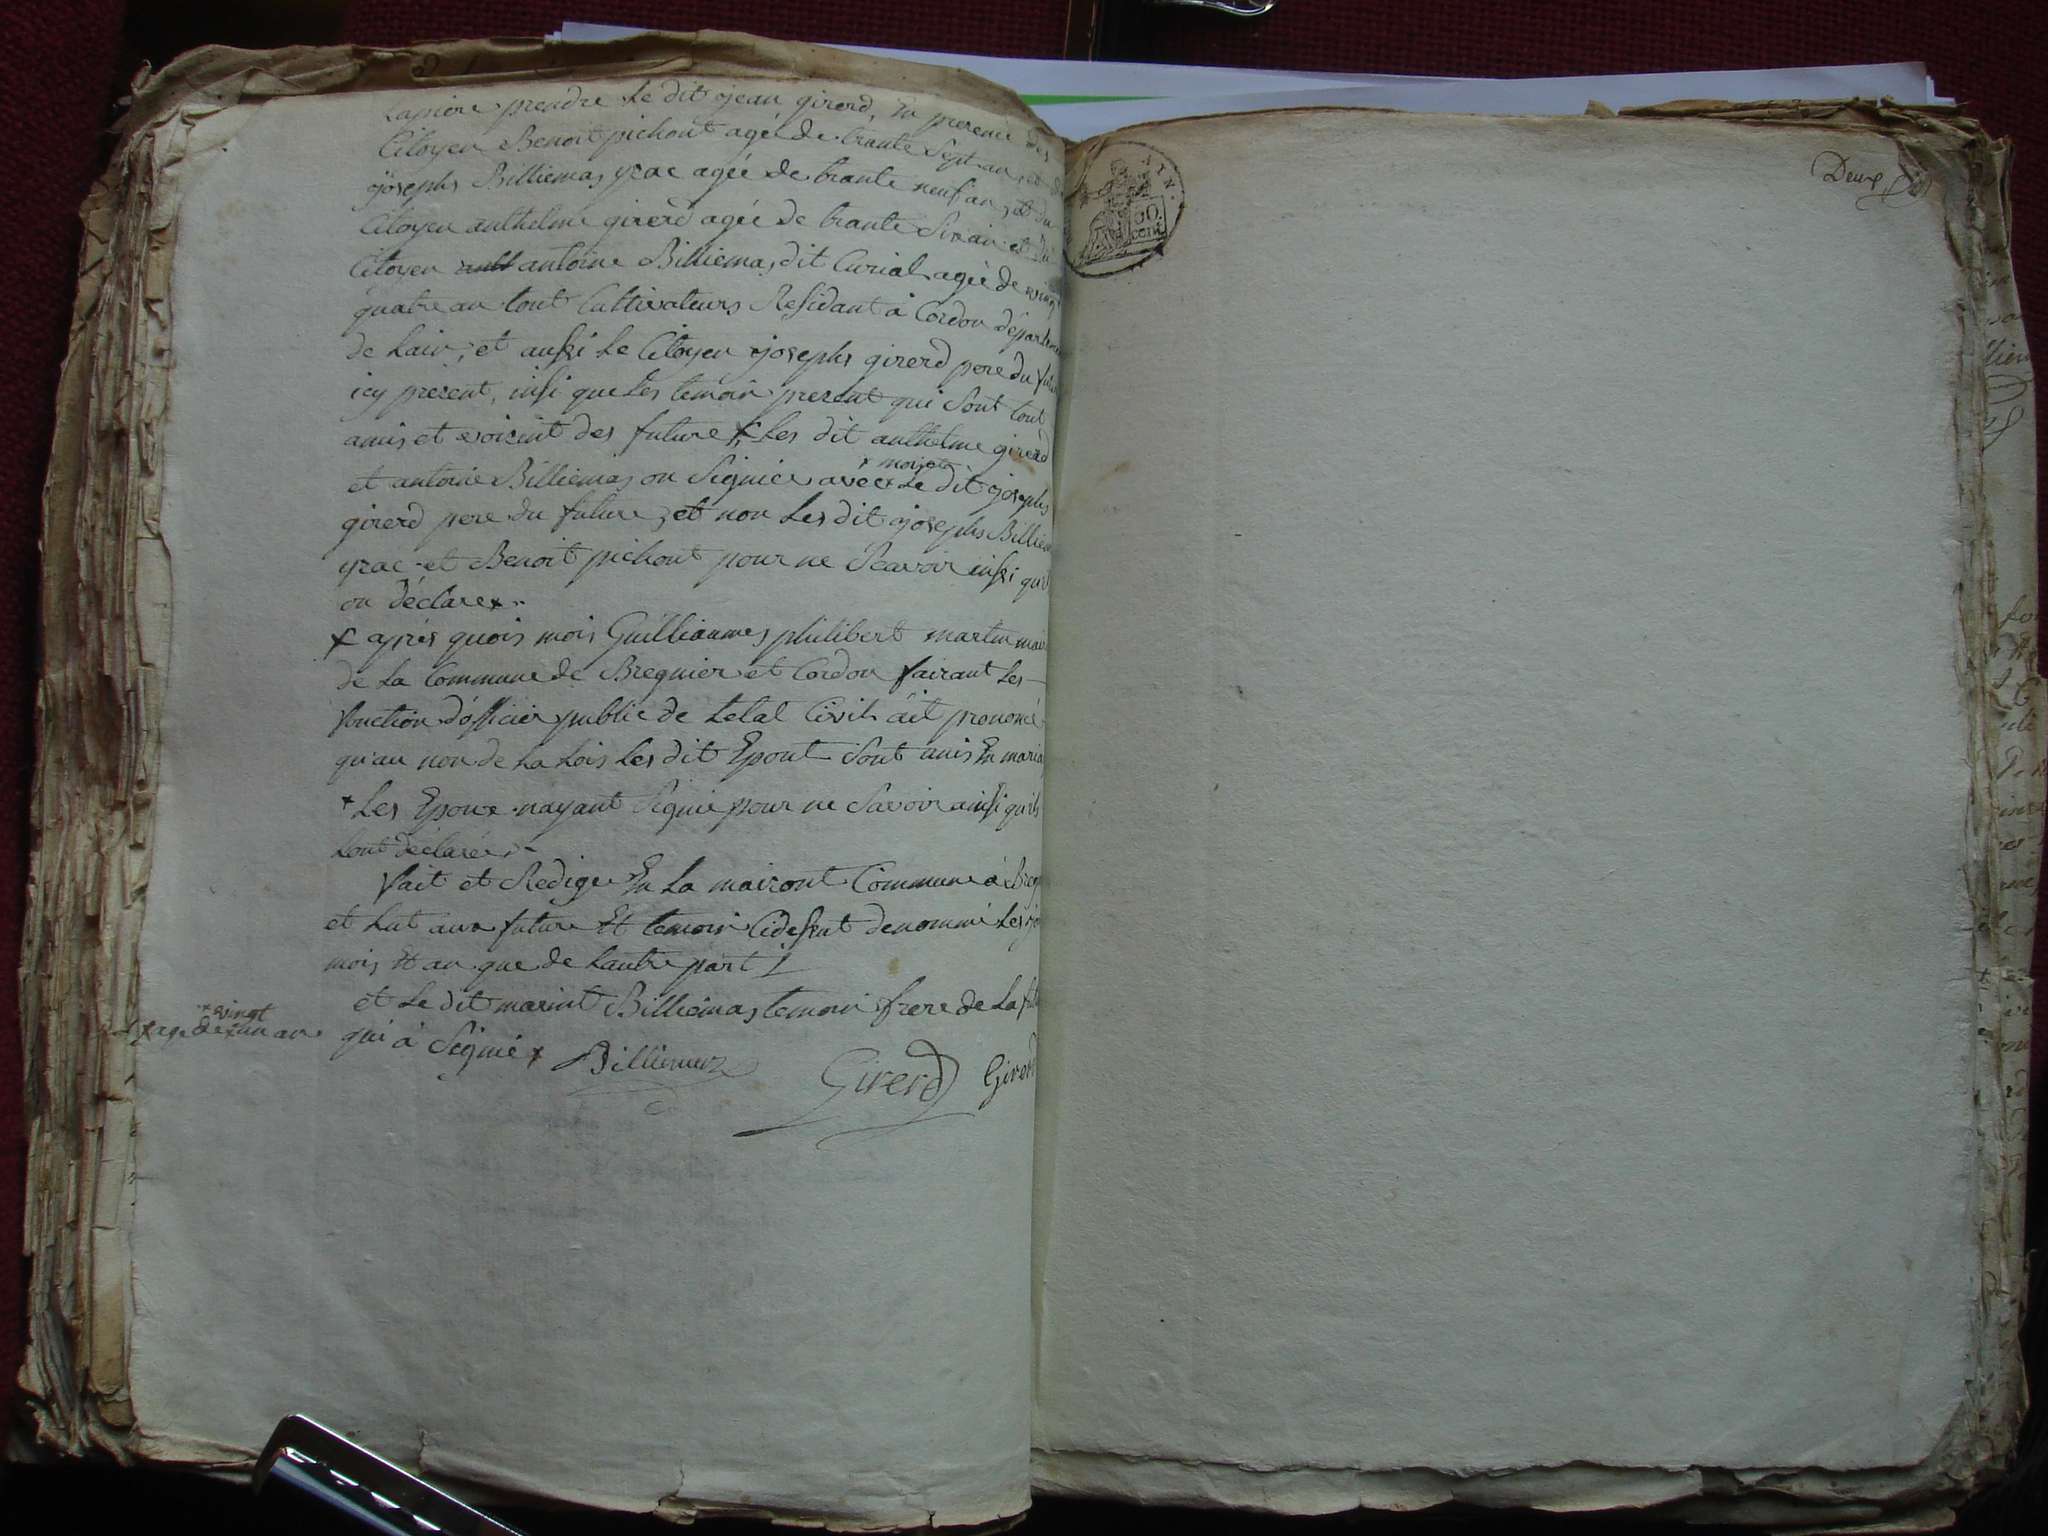 Lapiere prendre Le dit ojean girerd, En presence des
Citoyen Benoit pichont agée de trante Sept an, et de
ojosephs Billiemas yrac agée de trante neuf an, et du
Citoyen anthelme girerd agée de trante Six an et du
Citoyen antoine Billiemas dit Curial agée de vingt
quatre an tout Cultivateurs Residant a Cordon départeme
de Lain, et aussi Le Citoyen ojosephs girerd pere du futur
icy present, insi que Les temoin present qui Sont tout
amis et voisint des future, Les dit anthelme girerd
et antoine Billiemas on Signiée avec * Le dit ojosephs
* mois et
girerd pere du future, et non Les dit ojosephs Billiem
yrac et Benoit pichont pour ne Scavoir insi qu'il
on déclare x
x après quois mois Guilliaumes philibert martin mair
de La Commune de Bregnier et Cordon fairant Les
fonction d'officier public de Letat Civil ait prononcé
qu'au non de La Lois Les dit Epout Sont unis En maria
* Les Epoux nayant Signié pour ne Savoir ainsi qu'ils
Lont déclarée
fait et Redigé En La maisont Commune a Breg
et Lut aux future Et temoin Cidessut denommé Les jo
mois Et an que de Lautre part
et Le dit marint Billiemas temoin frere de La fut
qui à Signié x
* vingt
x age de * un an
Billiemaz
Girerd
Girerd
AIN.
50
cent
Deux